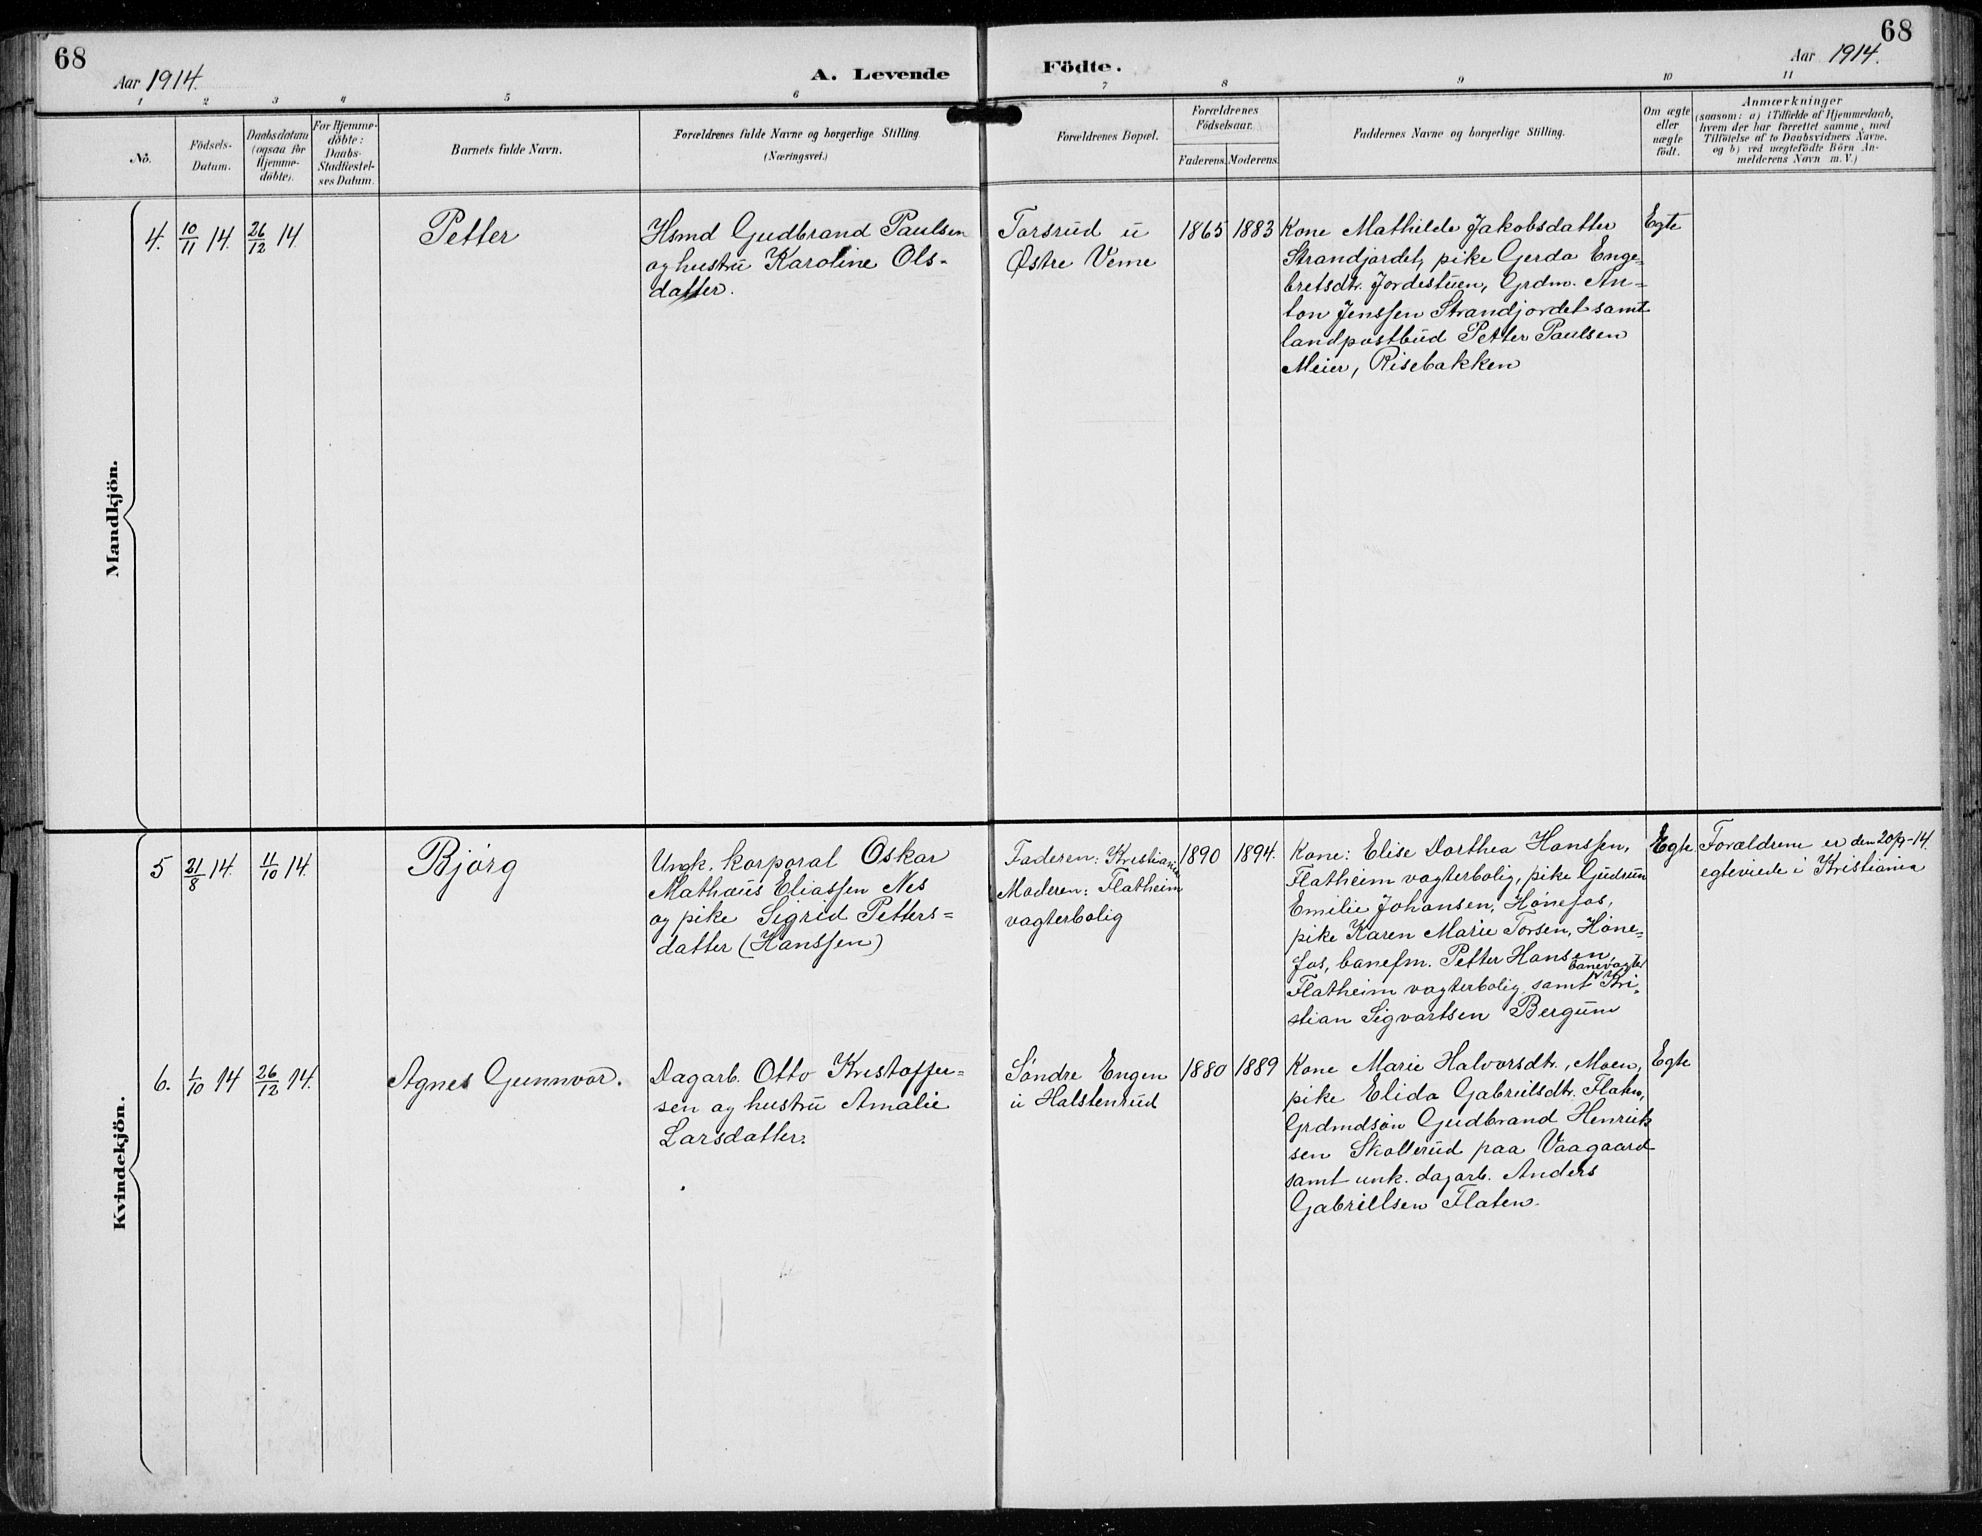 68
68
Aar 1914.
A. Levende
Födte.
Aar 1914.
1 2 3 4 5 6 7 8 9 10 11
No.
Födsels-
Datum.
Daabsdatum
(ogsaa for
Hjemme-
döbte).
For Hjemme-
döbte:
Daabs-
Stadfæstel-
ses Datum.
Barnets fulde Navn.
Forældrenes fulde Navne og borgerlige Stilling.
(Næringsvei.)
Forældrenes Bopæl.
Forældrenes
Födselsaar.
Faderens.
Moderens.
Faddernes Navne og borgerlige Stilling.
Om ægte
eller
uægte
födt.
Anmærkninger
(saasom: a) i Tilfælde af Hjemmedaab,
hvem der har forrettet samme, med
Tilföielse af to Daabsvidners Navne.
og b) ved uægtefödte Börn An-
melderens Navn m. V.)
Mandkjön.
4. 10/11 14. 26/12 14.
Petter
Hsmd Gudbrand Paulsen
og hustru Karoline Ols-
datter.
Torsrud u
Østre Veme
1865 1883
Kone Mathilde Jakobsdatter
Strandjordet, pike Gerda Enge-
bretsdtr. Jordestuen, Grdm. An-
ton Jenssen Strandjordet samt
landpostbud Petter Paulsen
Meier, Risebakken
Egte
Kvindekjön.
5 21/8 14. 11/10 14.
Bjørg
Ungk. korporal Oskar
Mathæus Eliassen Nes
og pike Sigrid Petters-
datter (Hanssen)
Faderen: Kristiania
Moderen: Flatheim
vagterbolig
1890 1894.
Kone: Elise Dorthea Hanssen,
Flatheim vagterbolig, pike Gudrun
Emilie Johansen, Hønefos,
pike Karen Marie Torsen, Høne-
fos, banefm. Petter Hansen,
Flatheim vagterbolig samt banevagter Kri-
stian Sigvartsen Bergum
Egte
Forældrene er den 20/9-14
egteviede i Kristiania
6. 1/10 14 26/12 14.
Agnes Gunnvor.
Dagarb. Otto Kristoffer-
sen og hustru Amalie
Larsdatter.
Søndre Engen
u Halstenrud
1880 1889
Kone Marie Halvorsdtr., Moen,
pike Elida Gabrielsdtr. Flaten,
Grdmdsøn Gudbrand Henrik
sen Skollerud paa Vaagaard
samt unk. dagarb. Anders
Gabrielsen Flaten.
Egte